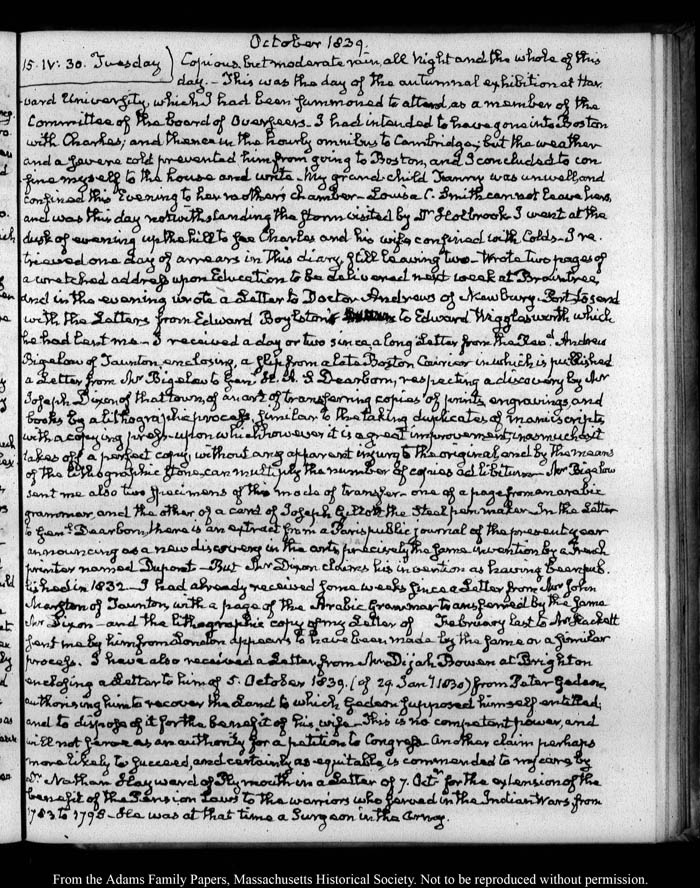 October 1839.
15. IV: 30. Tuesday) Copious but moderate rain, all Night and the whole of this
day. – This was the day of the autumnal exhibition at Har-
vard University, which I had been summoned to attend, as a member of the
Committee of the board of Overseers – I had intended to have gone into Boston
with Charles; and thence in the hourly omnibus to Cambridge; but the weather
and a severe cold prevented him from going to Boston, and I concluded to con
fine myself to the house and write – My grand child Fanny was unwell, and
confined this Evening to her mother's chamber – Louisa C. Smith can not leave hers,
and was this day notwithstanding the storm visited by Dr. Holbrook. I went at the
dusk of evening up the hill to see Charles and his wife confined with Colds – I re-
trieved one day of arrears in this diary, still leaving two – Wrote two pages of
a wretched address upon Education to be delivered next week at Braintree,
and in the evening wrote a Letter to Doctor Andrews of Newbury-Port to send
with the Letters from Edward Boylston's to Edward Wigglesworth which
he had lent me – I received a day or two since, a long Letter from the Revd. Andrew
Bigelow of Taunton, enclosing, a slip from a late Boston Courier in which is published
a Letter from Mr Bigelow to Genl. H. A. S Dearborn, respecting a discovery by Mr
Joseph Dixon, of that town, of an art of transferring copies of prints, engravings and
books by a lithographic process, similar to the taking duplicates of manuscripts
with a copying press – upon which however it is a great improvement, inasmuch as it
takes off a perfect copy, without any apparent injury to the original and by the means
of the lithographic stone, can multiply the number of copies ad libitum – Mr Bigelow
sent me also two specimens of this mode of transfer – one of a page from an arabic
grammar, and the other of a card of Joseph Gillott the Steel pen maker. In the Letter
to Genl. Dearborn, there is an extract from a Paris public journal of the present year
announcing as a new discovery in the arts, precisely the same invention by a French
printer named Dupont – But Mr Dixon claims his invention as having been pub-
lished in 1832 – I had already received some weeks since a Letter from Mr John
Marston of Taunton, with a page of the Arabic Grammar transferred by the same
Mr Dixon – and the lithographic copy of my Letter of February last to Mr Hackett
sent me by him from London appears to have been made by the same or a similar
process. I have also received a Letter from Mr Dijah Bowen at Brighton
enclosing a Letter to him of 5. October 1839. (of 29 Jany 1830) from Peter Gedeon,
authorising him to recover the Land to which Gedeon supposed himself entitled;
and to dispose of it for the benefit of his wife – This is no competent power, and
will not serve as an authority for a petition to Congress. Another claim perhaps
more likely to succeed, and certainly as equitable is commended to my care by
Dr. Nathan Hayward of Plymouth in a Letter of 7. Octr. for the extension of the
benefit of the Pension Laws to the warriors who served in the Indian Wars from
1783 to 1795 – He was at that time a Surgeon in the Army.
From the Adams Family Papers, Massachusetts Historical Society. Not to be reproduced without permission.